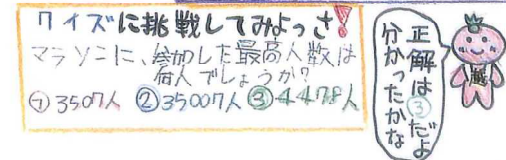 クイズに挑戦してみよっさ!
マラソンに、参加した最高人数は
何人でしょうか?
①3507人 ②35007人 ③4478人
正解は③だよ
分かったかな